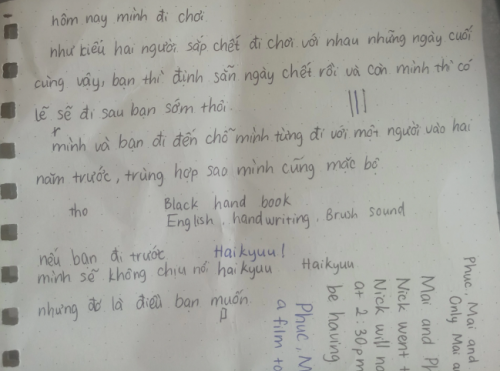 hôm nay mình đi chơi
như kiểu hai người sắp chết đi chơi với nhau những ngày cuối
cùng vậy, bạn thì định sẵn ngày chết rồi và còn mình thì có
lẽ sẽ đi sau bạn sớm thôi.
mình và bạn đi đến chỗ mình từng đi với một người vào hai
năm trước, trùng hợp sao mình cũng mặc bộ
tho
Black hand book
English, handwriting, Brush sound
nếu bạn đi trước
Haikyuu!
mình sẽ không chịu nổi haikyuu
Haikyuu
nhưng đó là điều bạn muốn
Phuc, Mai and
Only Mai
Mai and Ph
Nick went t
Nick will no
at 2:30pm
be having
Phuc, M
a film to